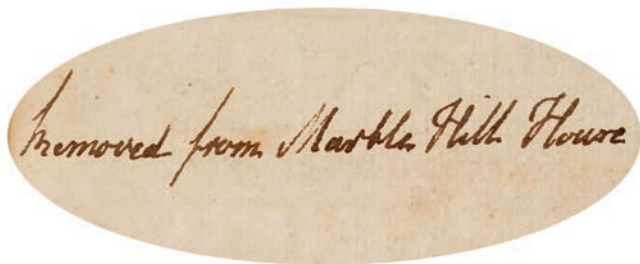 Removed from Marble Hill House